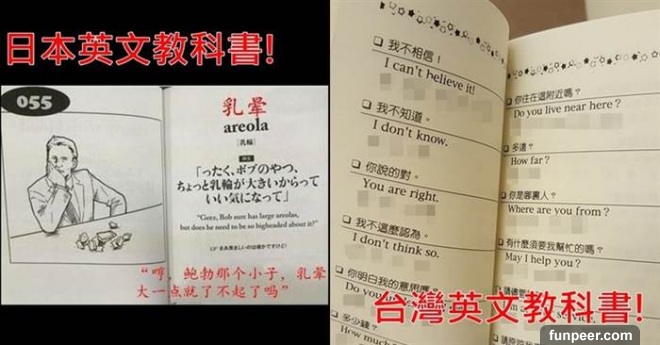 日本英文教科書!
055
乳晕
areola
[乳輪]
「ったく、ボブのやつ、
ちょっと乳輪が大きいからって
いい気になって」
"Geez, Bob sure has large areolas,
but does he need to be so bigheaded about it?"
"哼，鲍勃那个小子，乳晕
大一点就了不起了吗"
我不相信！
I can't believe it!
我不知道。
I don't know.
你說的對。
You are right.
我不這麼認為。
I don't think so.
你明白我的意思嗎
Do you
多少錢？
How much
你住在這附近嗎？
Do you live near here?
多遠？
How far?
你是哪裏人？
Where are you from?
有什麼須要我幫忙的嗎？
May I help you?
台灣英文教科書!
funpeer.com